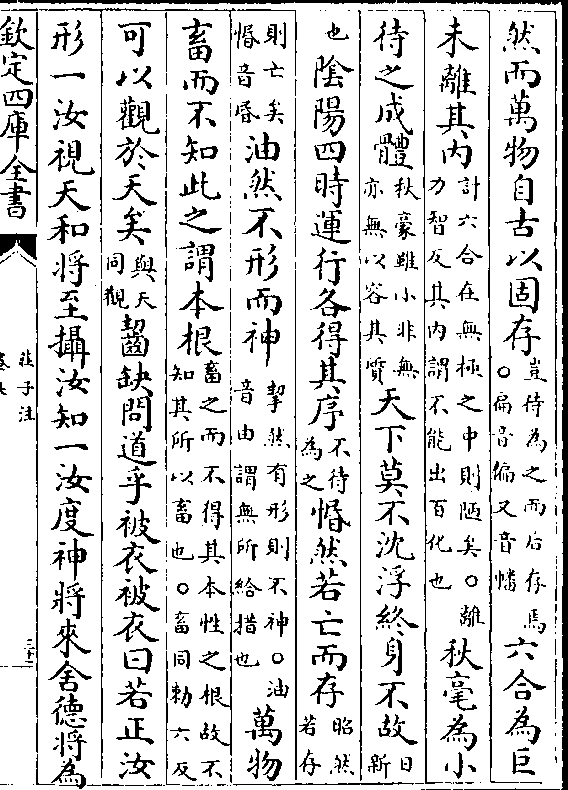 然而萬物自古以固存豈待為之而后存焉○扁音偏又音幡六合為巨
未離其内計六合在無極之中則陋矣○離力智反其内謂不能出百化也秋毫為小
待之成體秋豪雖小非無亦無以容其質天下莫不沈浮終身不故日新
也陰陽四時運行各得其序不待為之惛然若亡而存昭然若存
則亡矣惛音昏油然不形而神挈然有形則不神○油音由謂無所給措也萬物
畜而不知此之謂本根畜之而不得其本性之根故不知其所以畜也○畜同勅六反
可以觀於天矣與天同觀齧缺問道乎被衣被衣曰若正汝
形一汝視天和將至攝汝知一汝度神將來舍德將為
欽定四庫全書
莊子注